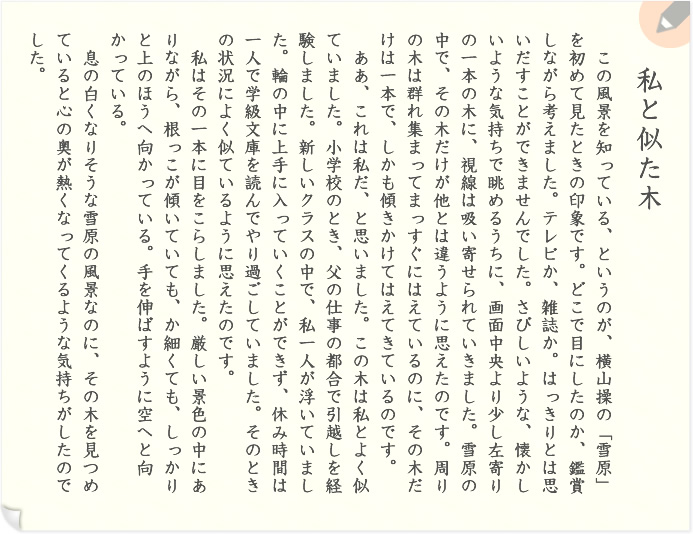 私と似た木
この風景を知っている、というのが、横山操の「雪原」
を初めて見たときの印象です。どこで目にしたのか、鑑賞
しながら考えました。テレビか、雑誌か。はっきりとは思
いだすことができませんでした。さびしいような、懐かし
いような気持ちで眺めるうちに、画面中央より少し左寄り
の一本の木に、視線は吸い寄せられていきました。雪原の
中で、その木だけが他とは違うように思えたのです。周り
の木は群れ集まってまっすぐにはえているのに、その木だ
けは一本で、しかも傾きかけてはえてきているのです。
ああ、これは私だ、と思いました。この木は私とよく似
ていました。小学校のとき、父の仕事の都合で引越しを経
験しました。新しいクラスの中で、私一人が浮いていまし
た。輪の中に上手に入っていくことができず、休み時間は
一人で学級文庫を読んでやり過ごしていました。そのとき
の状況によく似ているように思えたのです。
私はその一本に目をこらしました。厳しい景色の中にあ
りながら、根っこが傾いていても、か細くても、しっかり
と上のほうへ向かっている。手を伸ばすように空へと向
かっている。
息の白くなりそうな雪原の風景なのに、その木を見つめ
ていると心の奥が熱くなってくるような気持ちがしたので
した。